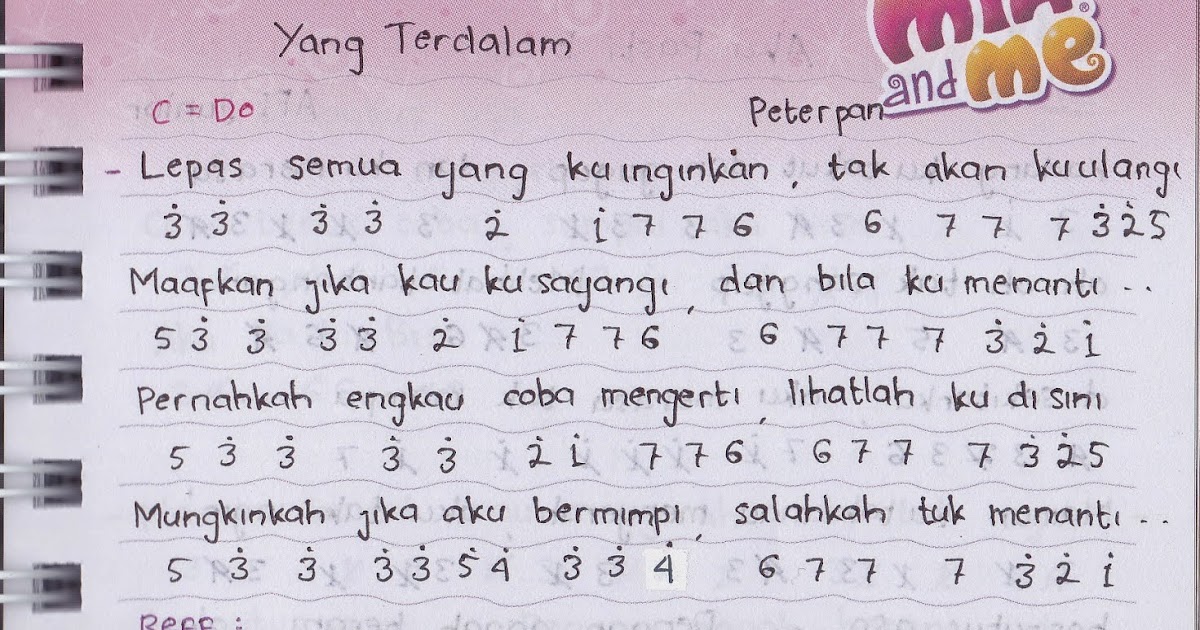 Yang Terdalam
and me®
C = Do
Peterpan
- Lepas semua yang ku inginkan, tak akan kuulangi
3̇ 3̇ 3̇ 3̇ 2̇ 1̇ 7 7 6 6 7 7 7 3̇ 2̇ 5
Maafkan jika kau ku sayangi, dan bila ku menanti ..
5 3̇ 3̇ 3̇ 3̇ 2̇ 1̇ 7 7 6 6 7 7 7 3̇ 2̇ 1̇
Pernahkah engkau coba mengerti, lihatlah ku disini
5 3̇ 3̇ 3̇ 3̇ 2̇ 1̇ 7 7 6 6 7 7 7 3̇ 2̇ 5
Mungkinkah jika aku bermimpi, salahkah tuk menanti ..
5 3̇ 3̇ 3̇ 3̇ 5̇ 4̇ 3̇ 3̇ 4̇ 6 7 7 7 3̇ 2̇ 1̇
Reff :